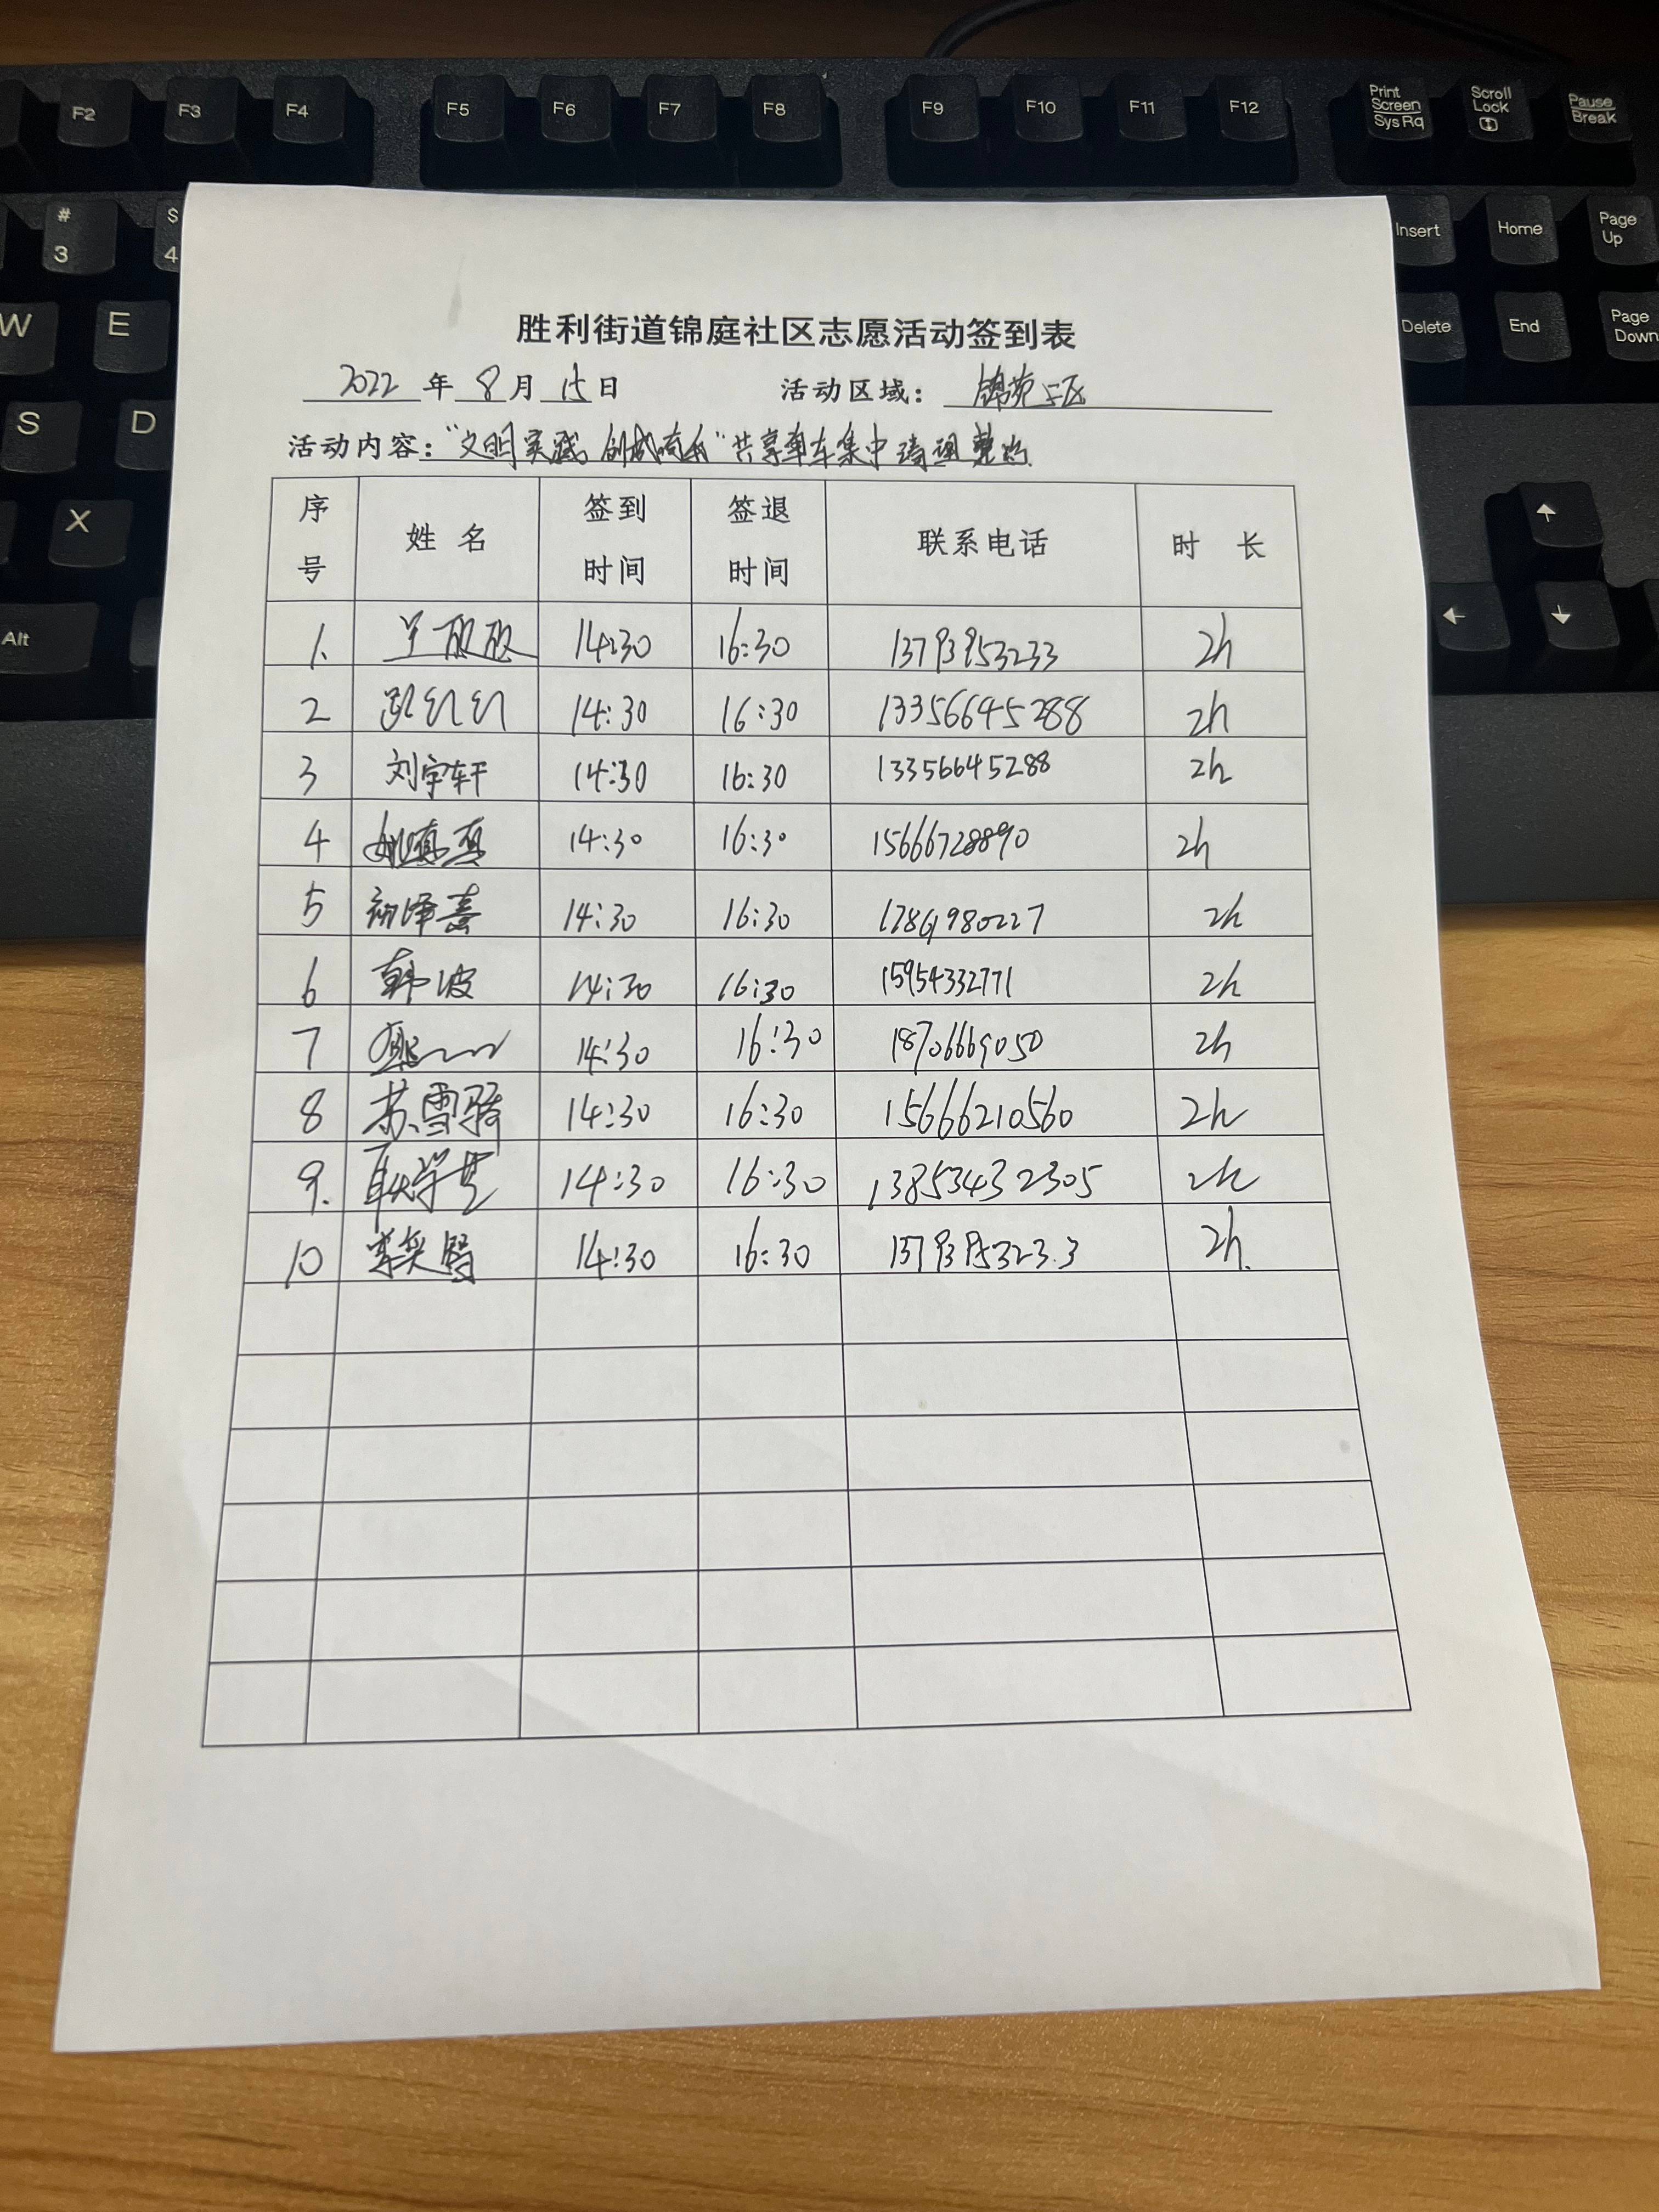 F2 F3 F4 F5 F6 F7 F8 F9 F10 F11 F12 Print Screen SysRq Scroll Lock Pause Break
# 3 $ 4 Insert Home Page Up
W E Delete End Page Down
S D
X
Alt
胜利街道锦庭社区志愿活动签到表
2022 年 8 月 15 日 活动区域: 锦苑 区
活动内容:“文明实践 创城” 共享单车集中清理
序号 姓名 签到时间 签退时间 联系电话 时长
1. 14:30 16:30 13793953233 2h
2 14:30 16:30 13356645288 2h
3 刘宇轩 14:30 16:30 13356645288 2h
4 姚真真 14:30 16:30 15666728890 2h
5 初泽熹 14:30 16:30 17861980227 2h
6 韩波 14:30 16:30 15954332771 2h
7 14:30 16:30 18706669050 2h
8 苏雪骑 14:30 16:30 15666210560 2h
9. 14:30 16:30 13853432305 2h
10 14:30 16:30 2h.